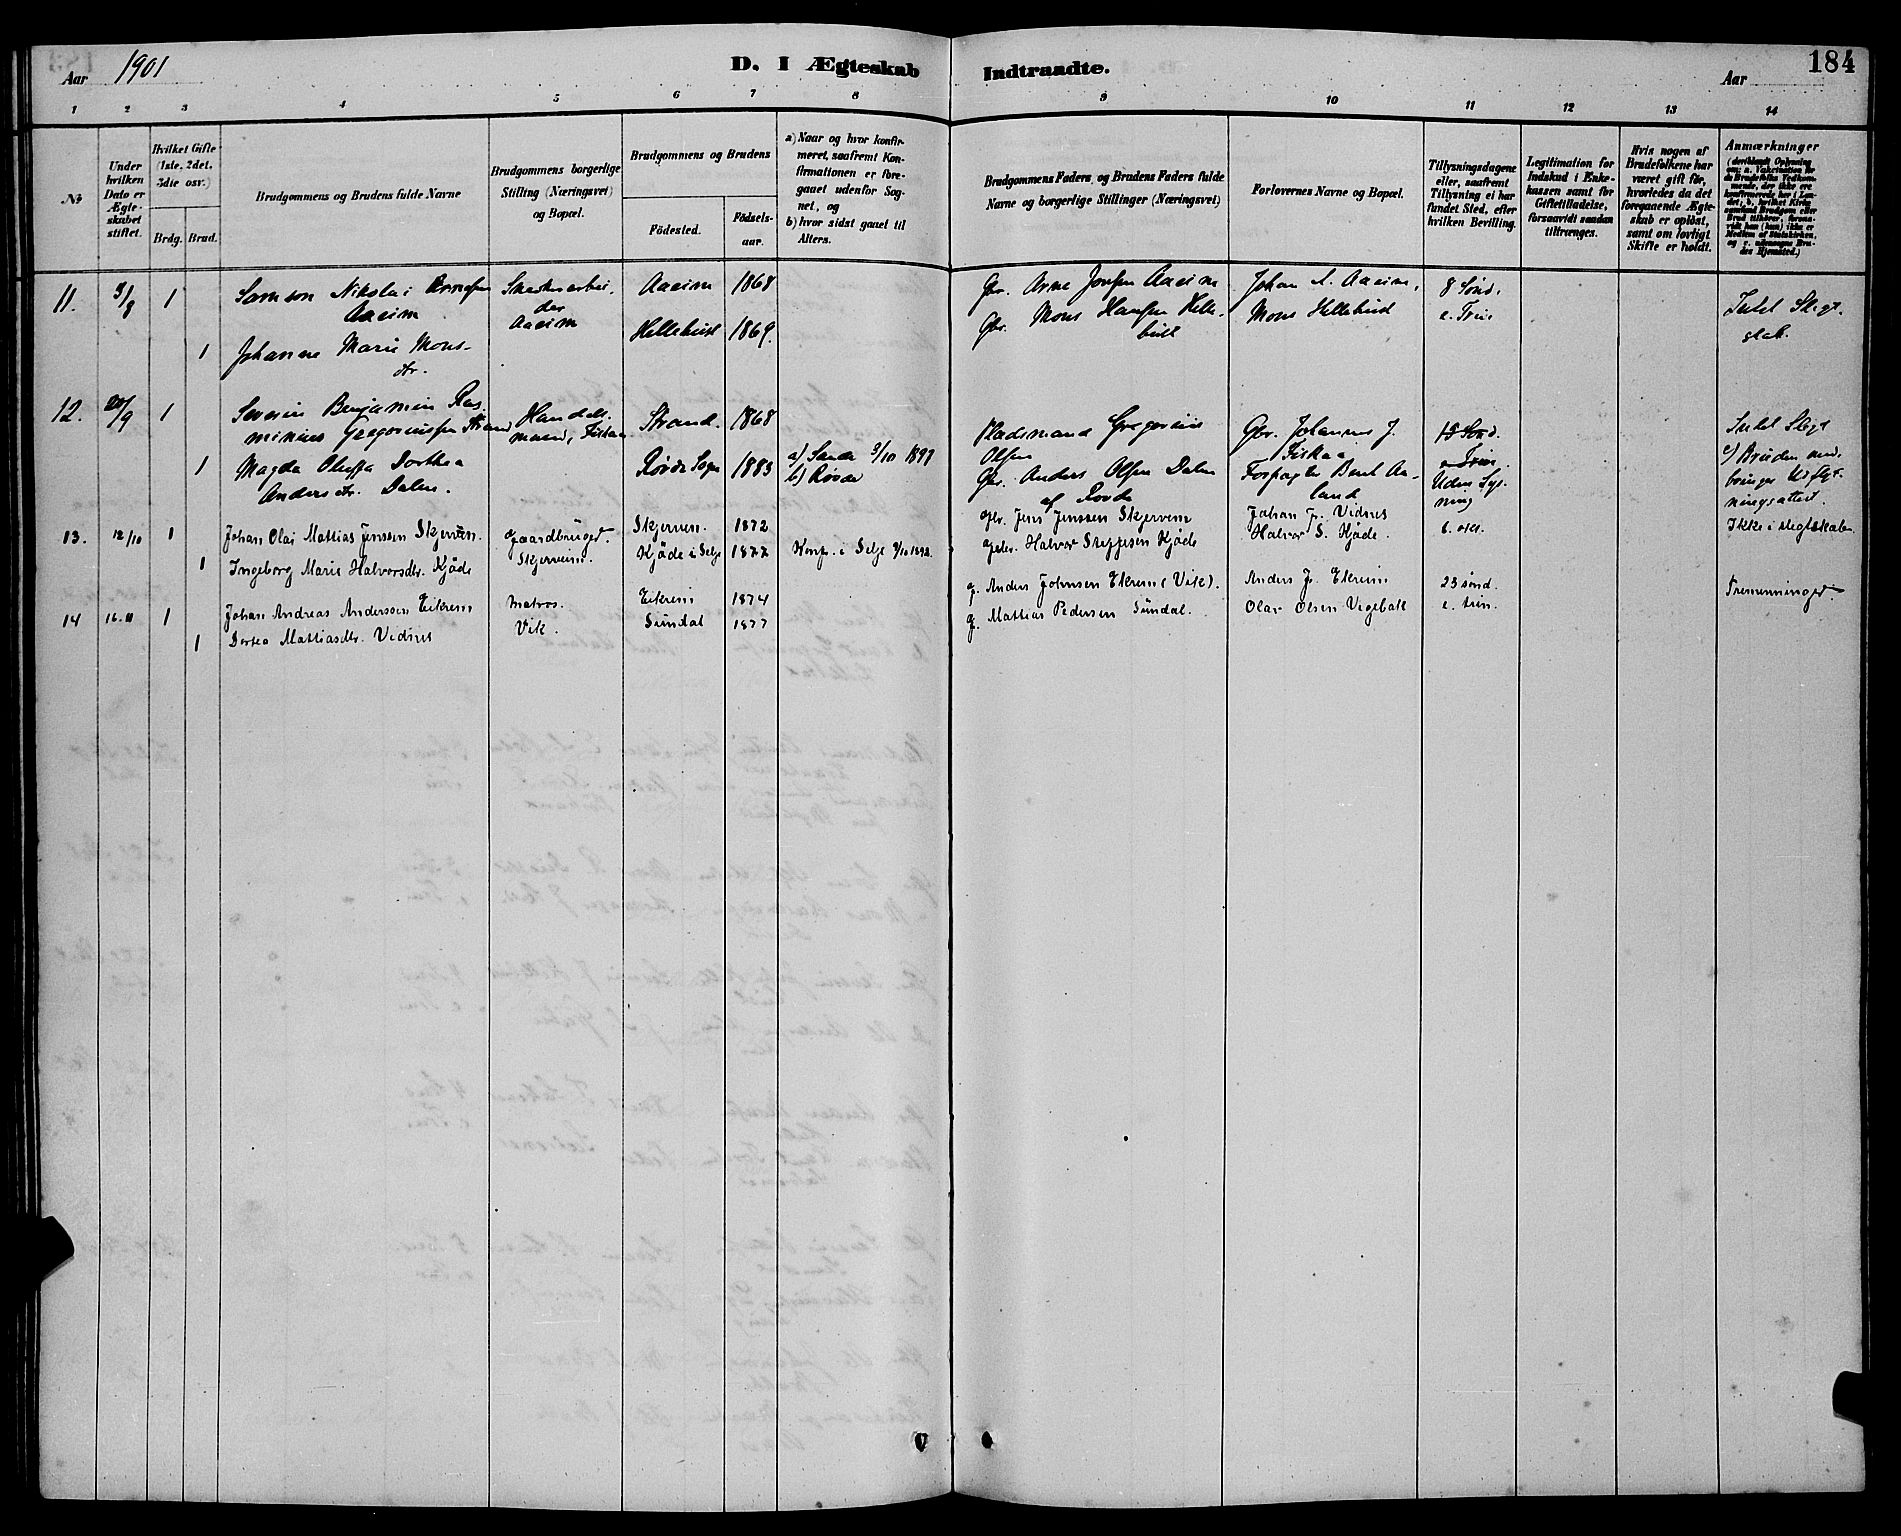 Aar 1901
D. I Ægteskab
Indtraadte.
Aar
184
1 2 3 4 5 6 7 8 9 10 11 12 13 14
No
Under hvilken Dato er Ægte-skabet stiftet.
Hvilket Gifte (1ste, 2det, 3die osv.)
Brdg. Brud.
Brudgommens og Brudens fulde Navne
Brudgommens borgerlige Stilling (Næringsvei) og Bopæl.
Brudgommens og Brudens
Födested.
Födsels-aar.
a) Naar og hvor konfir-meret, saafremt Kon-firmationen er fore-gaaet udenfor Sog-net, og
b) hvor sidst gaaet til Alters.
Brudgommens Faders og Brudens Faders fulde Navne og borgerlige Stillinger (Næringsvei)
Forlovernes Navne og Bopæl.
Tillysningsdagene eller, saafremt Tillysning ei har fundet Sted, efter hvilken Bevilling.
Legitimation for Indskud i Enke-kassen samt for Giftetilladelse, forsaavidt saadan tiltrænges.
Hvis nogen af Brudefolkene har været gift før, hvorledes da det foregaaende Ægte-skab er opløst, samt om lovligt Skifte er holdt.
Anmærkninger
11. 1 Samson Nikolai Arnesen Aaeim
Aaeim
Aaeim 1868
Gbr. Arne Aaeim
Johan A. Aaeim,
8 Sönd.
e. Trin
Intet Slegt-
skab.
1 Johanne Marie Mons-
dtr.
Hellebust 1869.
Gbr. Mons Hansen Helle-
bust
Mons Hellebust
12. 1 Severin Benjamin Ras-
minius Gregoriussen Strand
Handels-
mand, Fiskaa
Strand. 1868
Pladsmand Gregorius
Olsen
Gbr. Johannes J.
Fiskaa
Sönd.
e Trin.
Uden Lys-
ning
Intet Slegt
1 Magda Oluffa Dorthea
Anders dtr. Dalen.
Rövde Sogn 1883
a) Sande 3/10 1897
b) Rövde
Gbr. Anders Olsen Dalen
af Rovde
Forpagter Bent Aa-
land
c) Bruden med-
bringer Utflyt-
ningsattest.
13. 12/10 1 Johan Olai Mattias Jenssen Skjerven.
Gaardbruger.
Skjerveim.
Skjerven. 1872
gbr. Jens Jenssen Skjervem
Johan Jr. Vidnes
6. okt.
Ikke i slegtskab
1 Ingeborg Marie Halvorsdtr. Kjöde
Kjöde i Selje 1877
Konf. i Selje 9/10 1892.
Halvor Kjöde
Halvor S. Kjöde.
14 16.11 1 Johan Andreas Anderssen Eikrem
Matros.
Vik.
Eikrem 1874
g. Anders Johnsen Ekrem (Vik).
Anders J. Ekrem
23 sönd.
e. trin.
Tremenninger.
1 Dortea Mattiasdtr. Vidnes
Sundal 1877
g. Mattias Pedersen Sundal.
Olav Olsen Vegebak